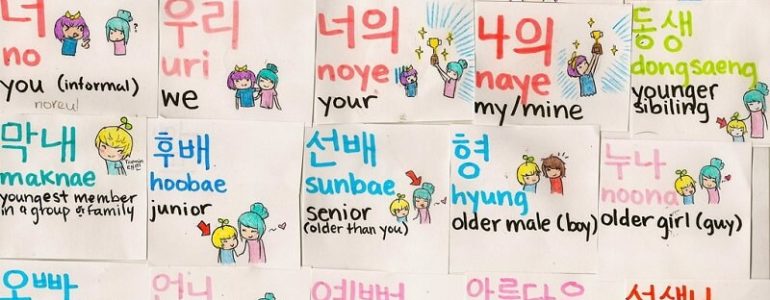 너
no
you (informal)
noreul
우리
uri
we
너의
noye
your
나의
naye
my/mine
동생
dongsaeng
younger
sibiling
막내
Taemin
태민
maknae
youngest member
in a group or family
후배
hoobae
junior
선배
sunbae
senior
(older than you)
형
hyung
older male (boy)
누나
noona
older girl (guy)
오빠
언니